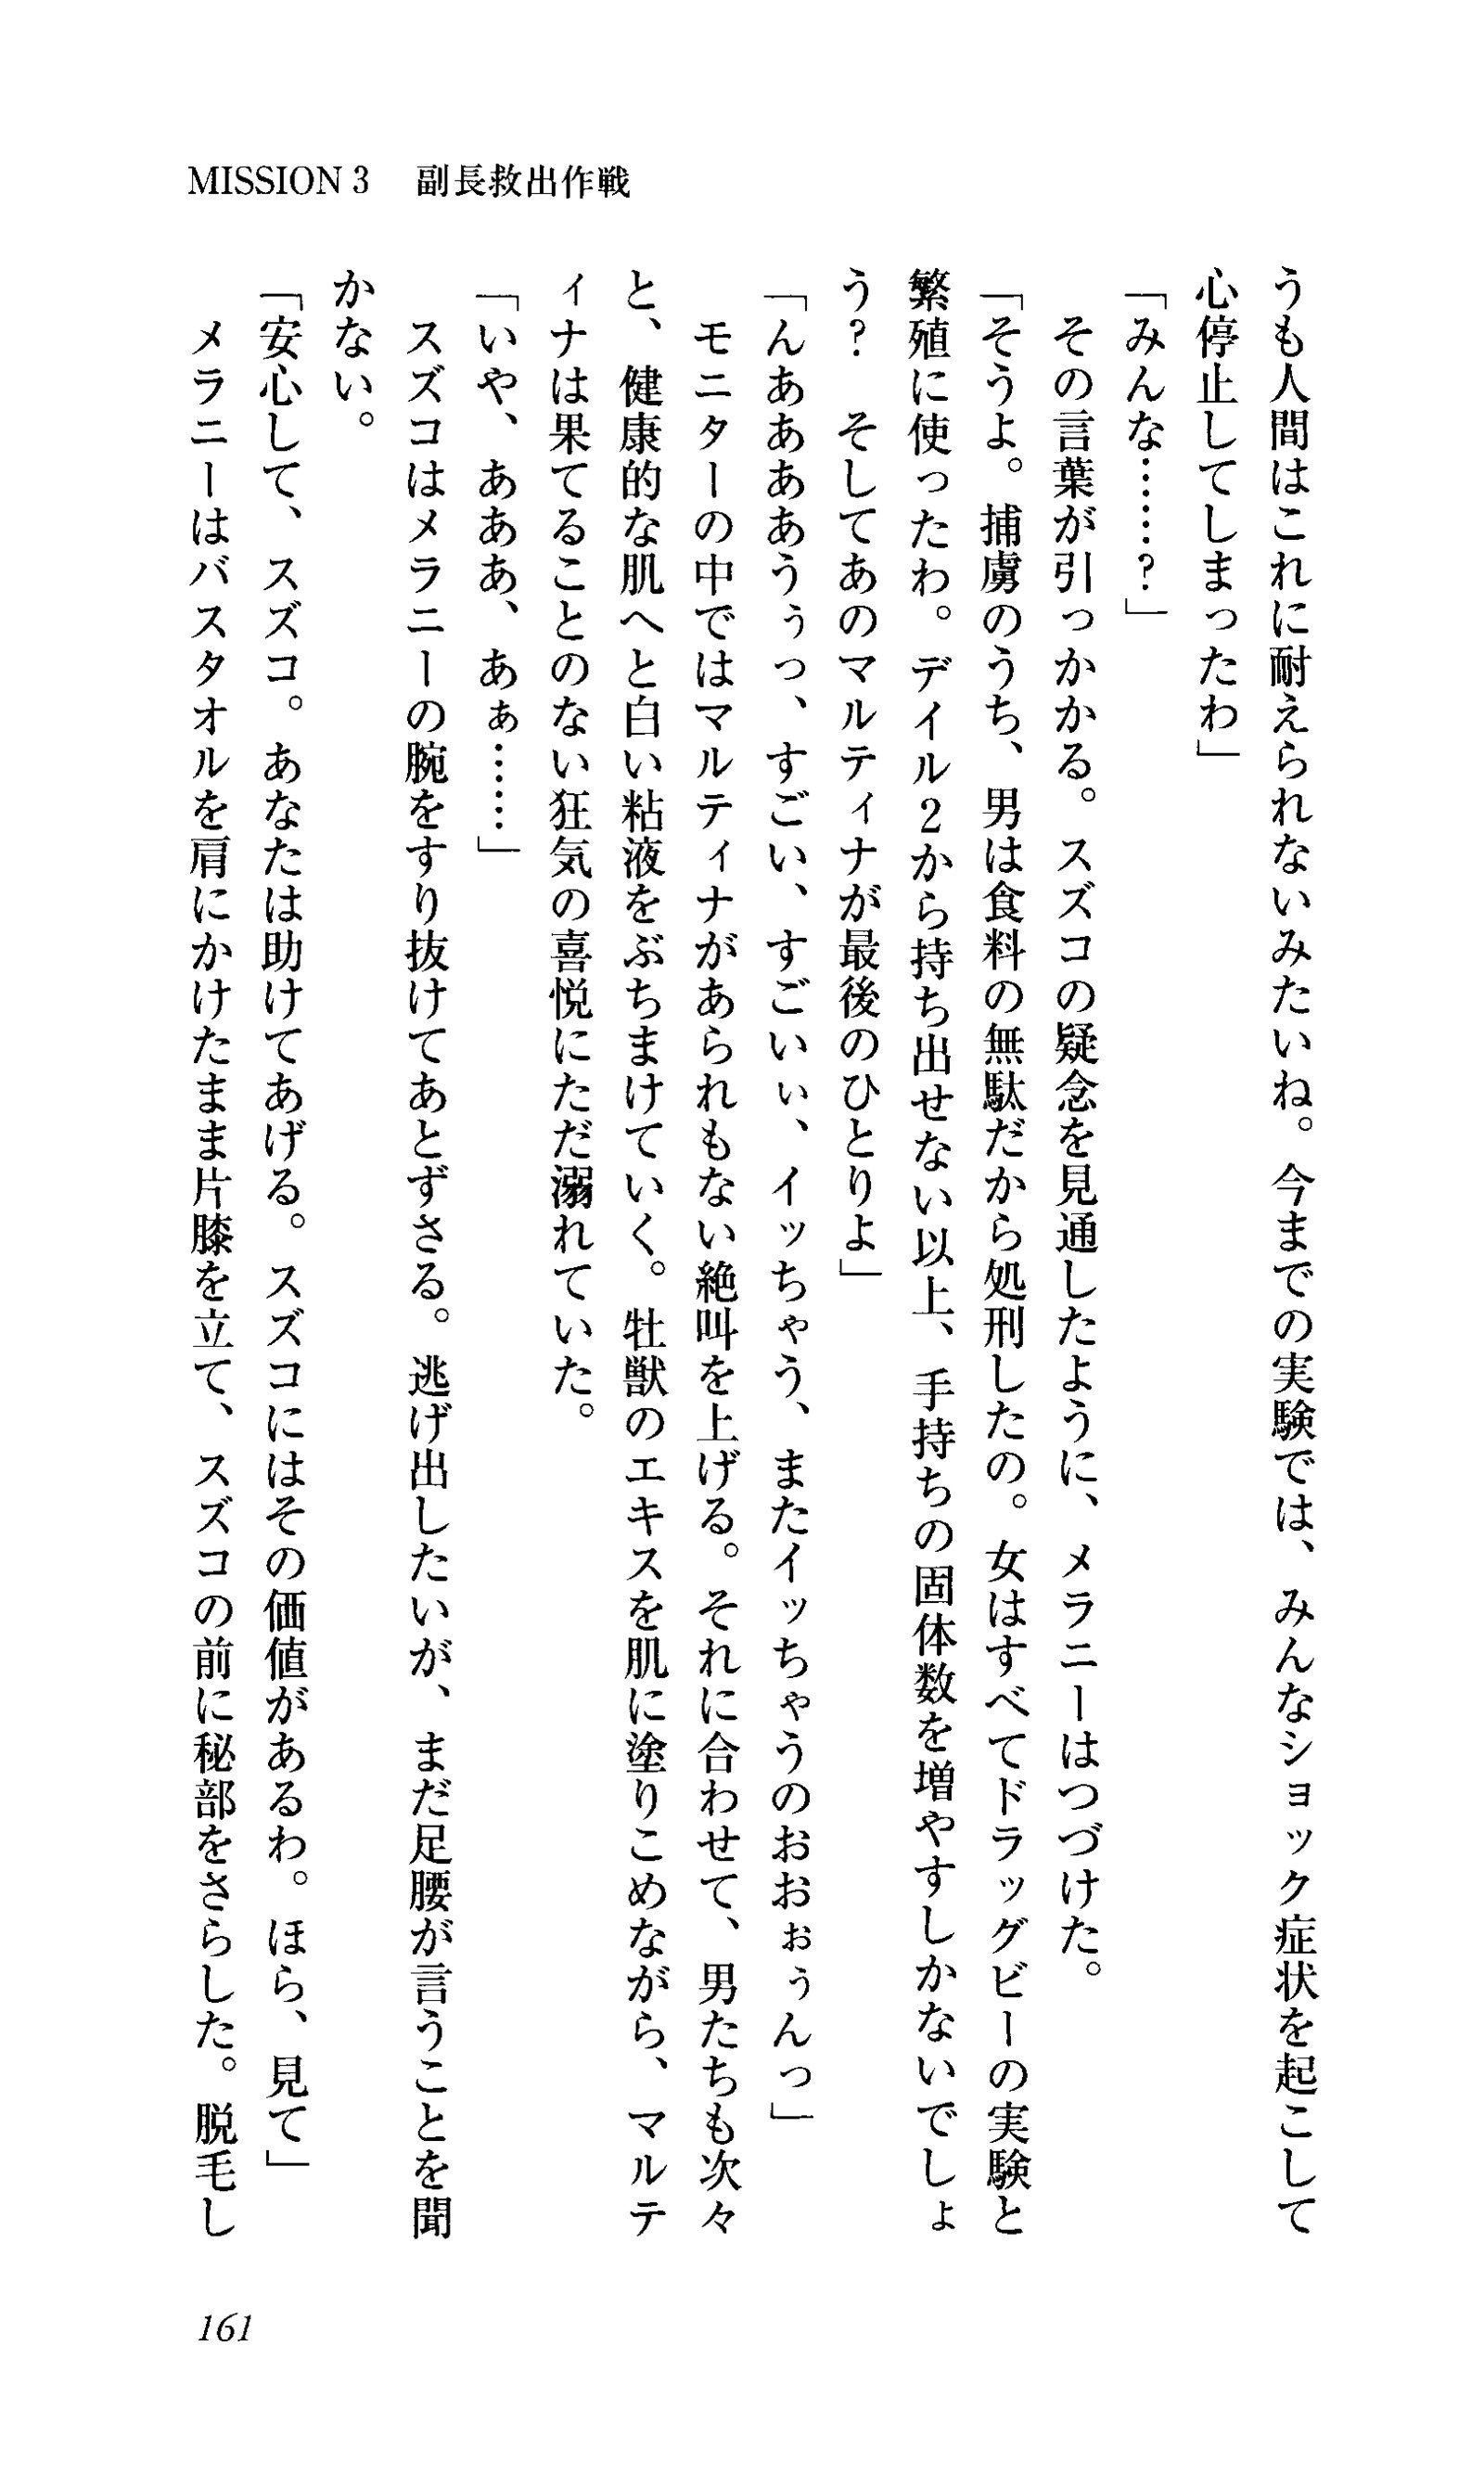 MISSION 3　副長救出作戦
うも人間はこれに耐えられないみたいね。今までの実験では、みんなショック症状を起こして
心停止してしまったわ」
「みんな……？」
　その言葉が引っかかる。スズコの疑念を見通したように、メラニーはつづけた。
「そうよ。捕虜のうち、男は食料の無駄だから処刑したの。女はすべてドラッグビーの実験と
繁殖に使ったわ。デイル２から持ち出せない以上、手持ちの固体数を増やすしかないでしょ
う？　そしてあのマルティナが最後のひとりよ」
「んああああうぅっ、すごい、すごいぃ、イッちゃう、またイッちゃうのおおぉぅんっ」
　モニターの中ではマルティナがあられもない絶叫を上げる。それに合わせて、男たちも次々
と、健康的な肌へと白い粘液をぶちまけていく。牡獣のエキスを肌に塗りこめながら、マルテ
ィナは果てることのない狂気の喜悦にただ溺れていた。
「いや、あああ、あぁ……」
　スズコはメラニーの腕をすり抜けてあとずさる。逃げ出したいが、まだ足腰が言うことを聞
かない。
「安心して、スズコ。あなたは助けてあげる。スズコにはその価値があるわ。ほら、見て」
　メラニーはバスタオルを肩にかけたまま片膝を立て、スズコの前に秘部をさらした。脱毛し
161